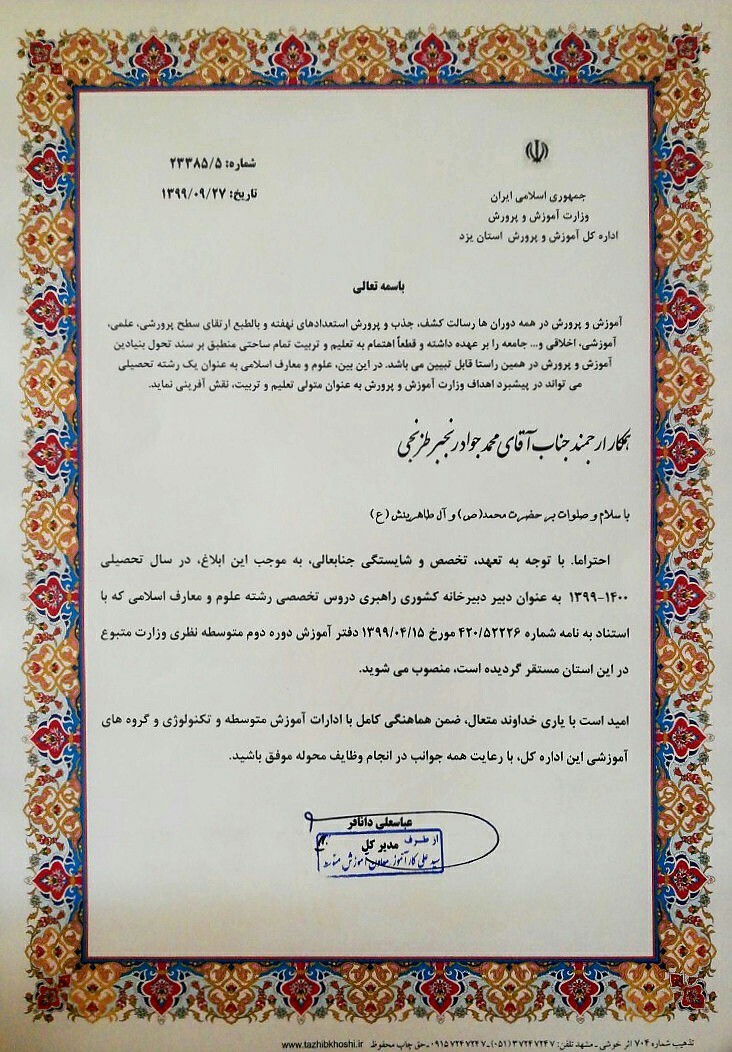 شماره: ۲۳۳۸۵/۵
تاریخ: ۱۳۹۹/۰۹/۲۷
جمهوری اسلامی ایران
وزارت آموزش و پرورش
اداره کل آموزش و پرورش استان یزد
باسمه تعالی
آموزش و پرورش در همه دوران ها رسالت کشف، جذب و پرورش استعدادهای نهفته و بالطبع ارتقای سطح پرورشی، علمی،
آموزشی، اخلاقی و... جامعه را بر عهده داشته و قطعاً اهتمام به تعلیم و تربیت تمام ساحتی منطبق بر سند تحول بنیادین
آموزش و پرورش در همین راستا قابل تبیین می باشد. در این بین، علوم و معارف اسلامی به عنوان یک رشته تحصیلی
می تواند در پیشبرد اهداف وزارت آموزش و پرورش به عنوان متولی تعلیم و تربیت، نقش آفرینی نماید.
همکار ارجمند جناب آقای محمد جواد رنجبر طزنجی
با سلام و صلوات بر حضرت محمد(ص) و آل طاهرینش (ع)
احتراما. با توجه به تعهد، تخصص و شایستگی جنابعالی، به موجب این ابلاغ، در سال تحصیلی
۱۳۹۹-۱۴۰۰ به عنوان دبیر دبیرخانه کشوری راهبری دروس تخصصی رشته علوم و معارف اسلامی که با
استناد به نامه شماره ۴۲۰/۵۲۲۲۶ مورخ ۱۳۹۹/۰۴/۱۵ دفتر آموزش دوره دوم متوسطه نظری وزارت متبوع
در این استان مستقر گردیده است، منصوب می شوید.
امید است با یاری خداوند متعال، ضمن هماهنگی کامل با ادارات آموزش متوسطه و تکنولوژی و گروه های
آموزشی این اداره کل، با رعایت همه جوانب در انجام وظایف محوله موفق باشید.
عباسعلی دانافر
از طرف
مدیر کل
سید علی کارآموز معاون آموزش متوسطه
تذهیب شماره ۷۰۴ اثر خوشی ـ مشهد تلفن: ۳۷۲۴۷۲۴۷ (۰۵۱) ـ ۰۹۱۵۷۲۴۷۲۴۷ ـ حق چاپ محفوظ www.tazhibkhoshi.ir